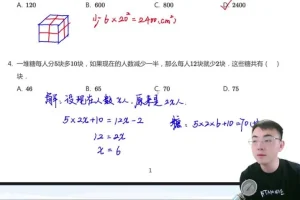 A. 120 B. 600 C. 800 D. 2400
小: 6×20²=2400(cm²)
4. 一堆糖每人分5块多10块，如果现在的人数减少一半，那么每人12块就少2块．这些糖共有（ ）
块．
A. 46 B. 60 C. 70 D. 75
解: 设现在人数x人, 原来是2x人.
5×2x+10=12x-2
糖: 5×2×6+10=70
12=2x
x=6
1